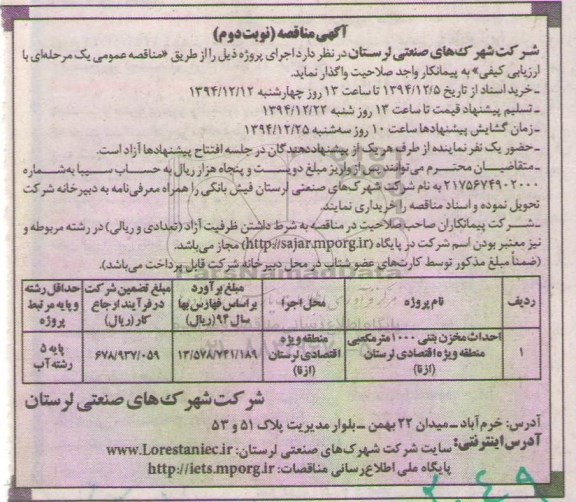 آگهی مناقصه (نوبت دوم)
شرکت شهرک‌های صنعتی لرستان در نظر دارد اجرای پروژه ذیل را از طریق «مناقصه عمومی یک مرحله‌ای با
ارزیابی کیفی» به پیمانکار واجد صلاحیت واگذار نماید.
- خرید اسناد از تاریخ ۱۳۹۴/۱۲/۵ تا ساعت ۱۳ روز چهارشنبه ۱۳۹۴/۱۲/۱۲
- تسلیم پیشنهاد قیمت تا ساعت ۱۳ روز شنبه ۱۳۹۴/۱۲/۲۲
- زمان گشایش پیشنهادها ساعت ۱۰ روز سه‌شنبه ۱۳۹۴/۱۲/۲۵
- حضور یک نفر نماینده از طرف هر یک از پیشنهاددهندگان در جلسه افتتاح پیشنهادها آزاد است.
- متقاضیان محترم می‌توانند پس از واریز مبلغ دویست و پنجاه هزار ریال به حساب سیبا به‌شماره
۲۱۷۵۶۷۴۹۰۲۰۰۰ به نام شرکت شهرک‌های صنعتی لرستان فیش بانکی را همراه معرفی‌نامه به دبیرخانه شرکت
تحویل نموده و اسناد مناقصه را خریداری نمایند.
- شرکت پیمانکاران صاحب صلاحیت در مناقصه به شرط داشتن ظرفیت آزاد (تعدادی و ریالی) در رشته مربوطه و
نیز معتبر بودن اسم شرکت در پایگاه (http://sajar.mporg.ir) مجاز می‌باشد.
(ضمناً مبلغ مذکور توسط کارت‌های عضو شتاب در محل دبیرخانه شرکت قابل پرداخت می‌باشد).
ردیف نام پروژه محل اجرا مبلغ برآورد براساس فهارس بها سال ۹۴ (ریال) مبلغ تضمین شرکت در فرآیند ارجاع کار (ریال) حداقل رشته و پایه مرتبط پروژه
۱ احداث مخزن بتنی ۱۰۰۰ مترمکعبی منطقه ویژه اقتصادی لرستان (ازنا) منطقه ویژه اقتصادی لرستان (ازنا) ۱۳/۵۷۸/۷۴۱/۱۸۹ ۶۷۸/۹۳۷/۰۵۹ پایه ۵ رشته آب
شرکت شهرک‌های صنعتی لرستان
آدرس: خرم‌آباد - میدان ۲۲ بهمن - بلوار مدیریت پلاک ۵۱ و ۵۳
آدرس اینترنتی: سایت شرکت شهرک‌های صنعتی لرستان: www.Lorestaniec.ir
پایگاه ملی اطلاع‌رسانی مناقصات: http://iets.mporg.ir